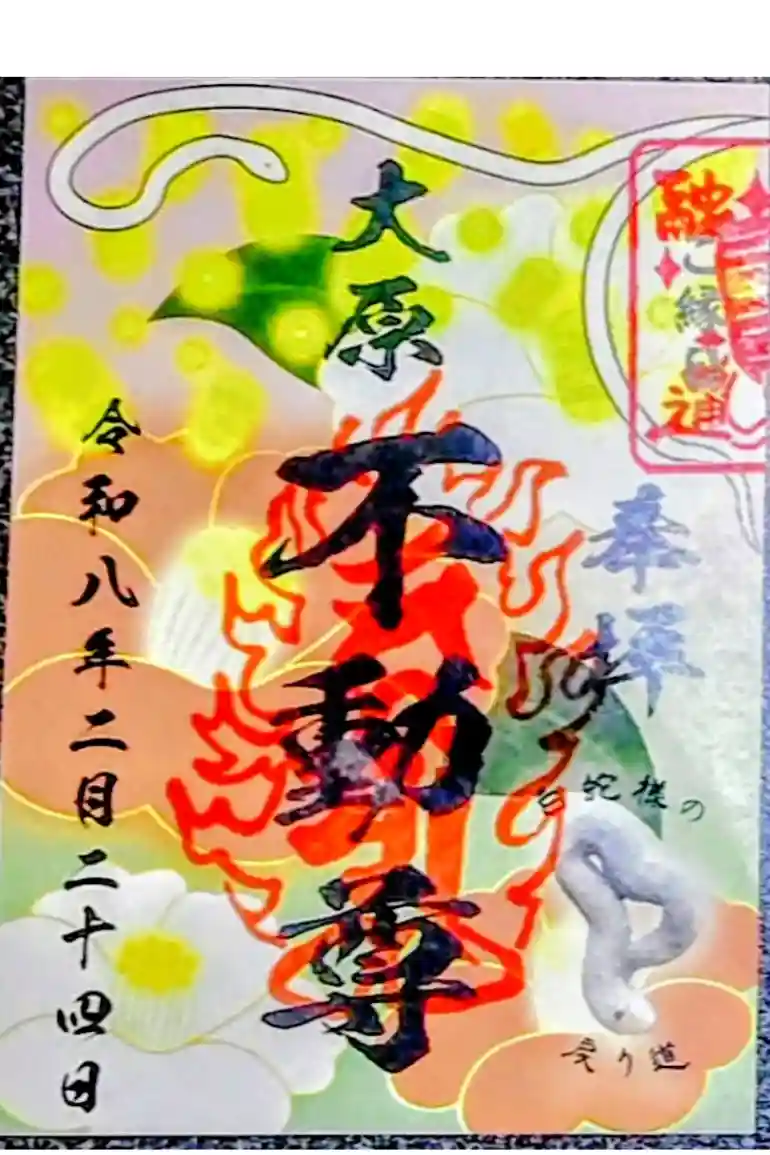 融通
ご縁日
奉拝
白蛇様の
り道
大原
不動尊
令和八年二月二十四日